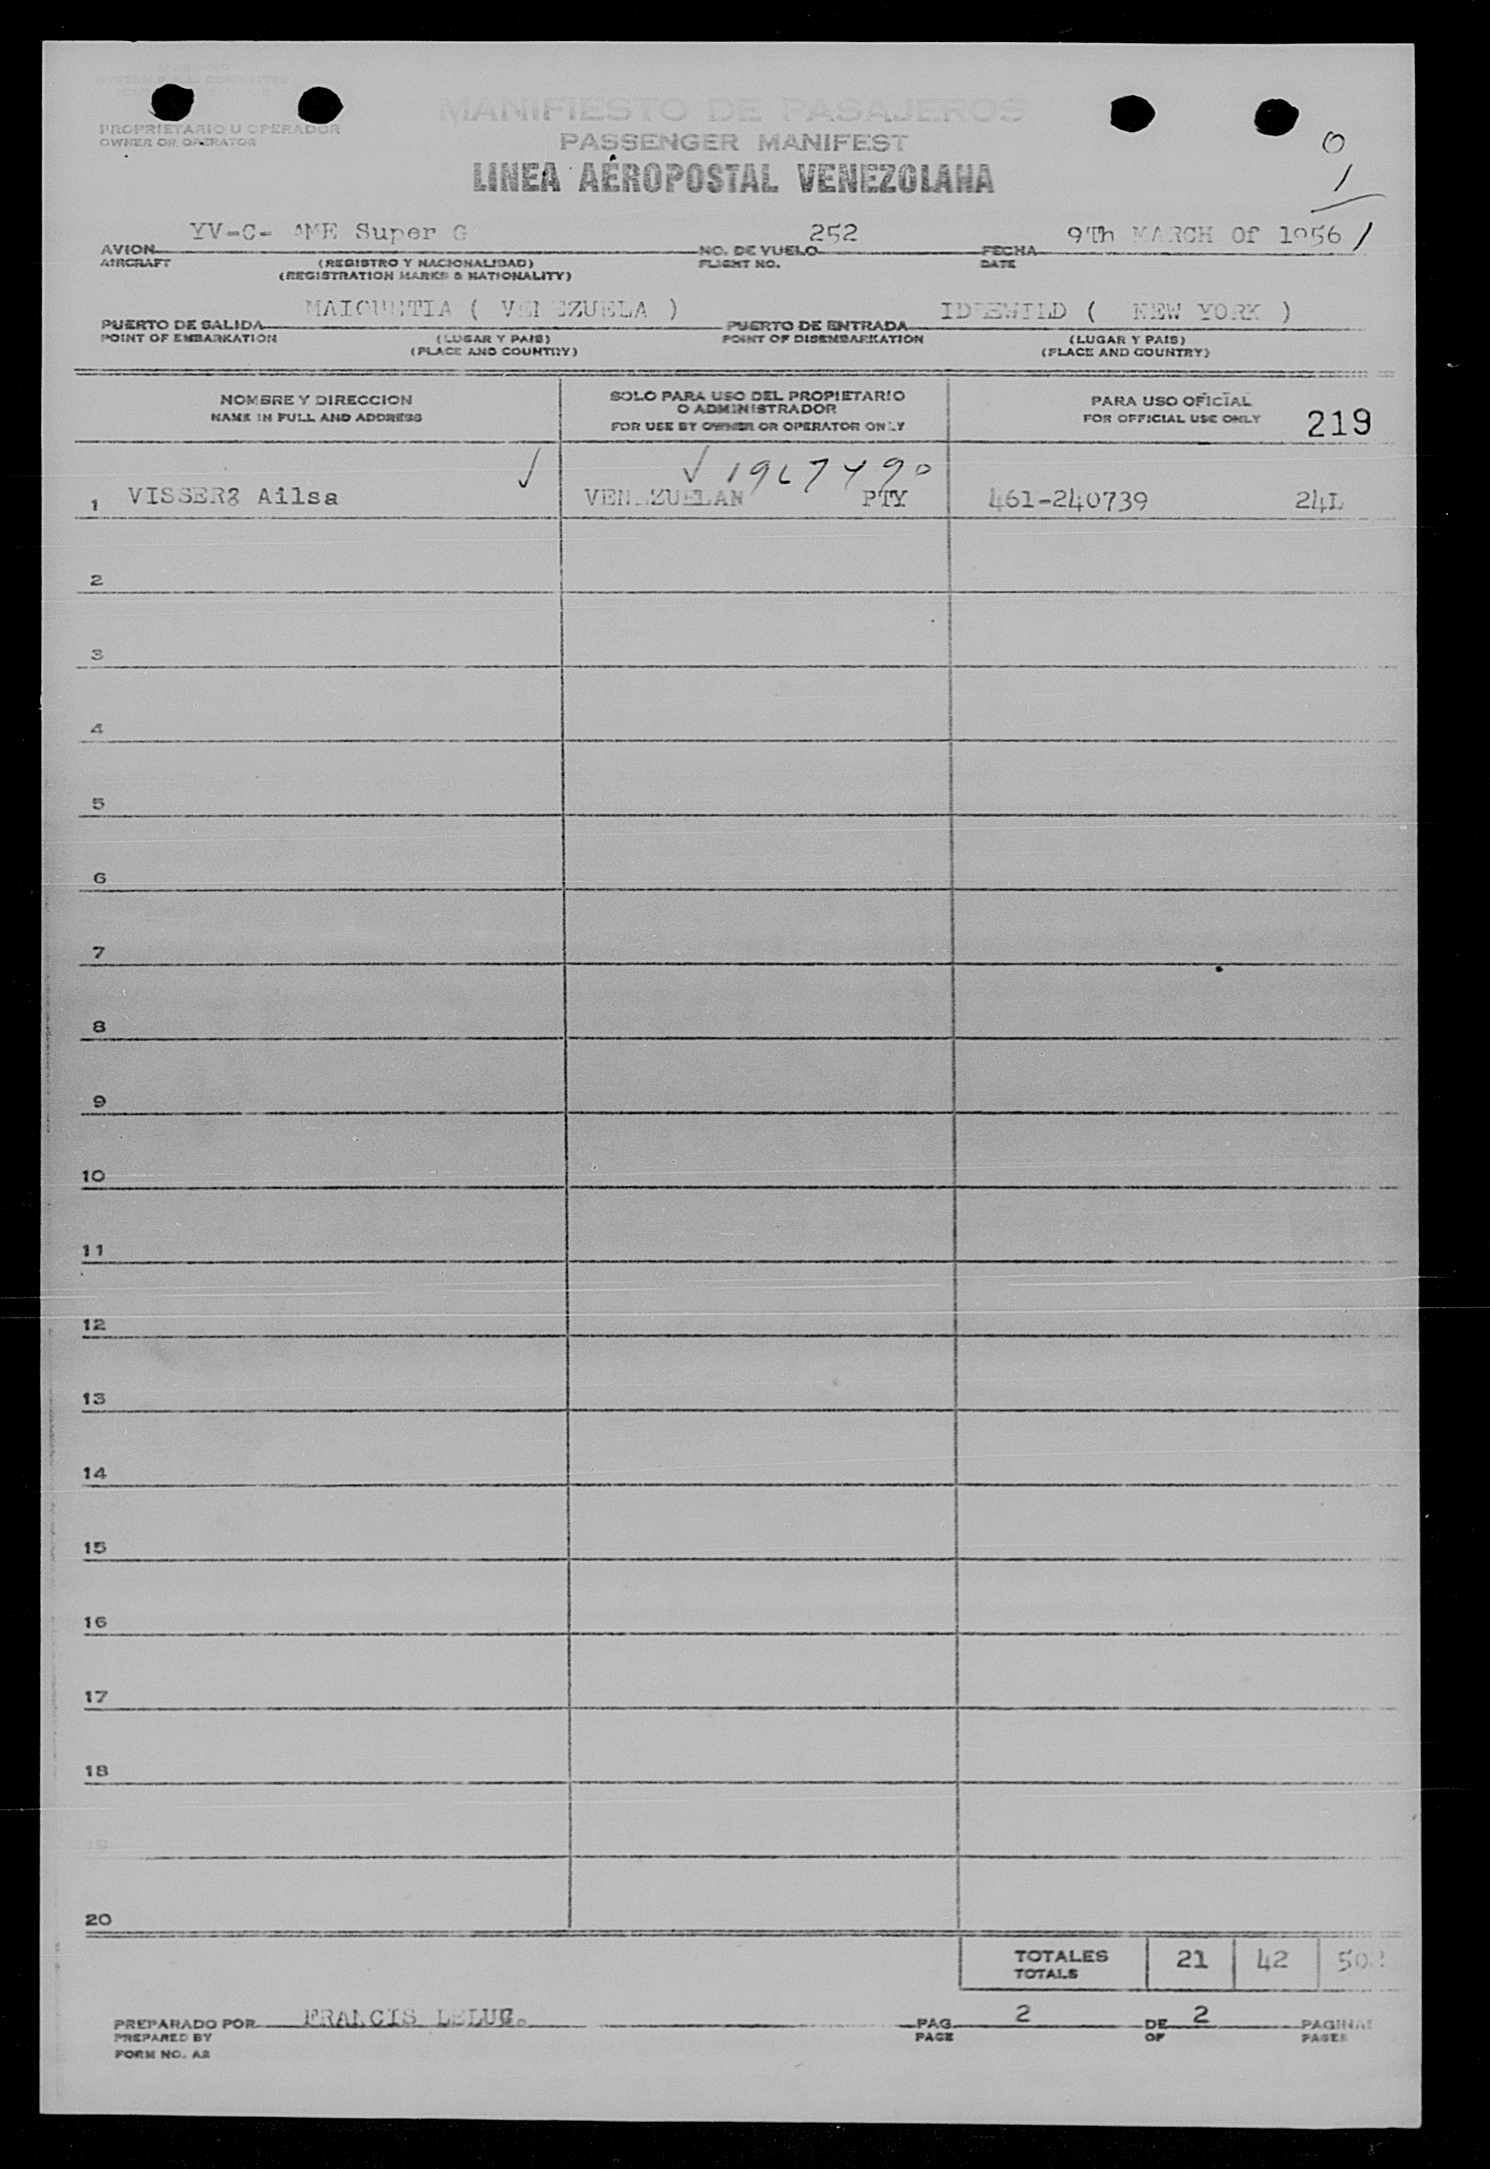 MANIFIESTO DE PASAJEROS
PROPRIETARIO U OPERADOR
OWNER OR OPERATOR
PASSENGER MANIFEST
LINEA AEROPOSTAL VENEZOLANA
0
1
YV-C- AME Super G
252
9Th MARCH Of 1956 /
AVION
AIRCRAFT
(REGISTRO Y NACIONALIDAD)
(REGISTRATION MARKS & NATIONALITY)
NO. DE VUELO
FLIGHT NO.
FECHA
DATE
MAIQUETIA ( VENEZUELA )
IDLEWILD ( NEW YORK )
PUERTO DE SALIDA
POINT OF EMBARKATION
(LUGAR Y PAIS)
(PLACE AND COUNTRY)
PUERTO DE ENTRADA
POINT OF DISEMBARKATION
(LUGAR Y PAIS)
(PLACE AND COUNTRY)
NOMBRE Y DIRECCION
NAME IN FULL AND ADDRESS
SOLO PARA USO DEL PROPIETARIO
O ADMINISTRADOR
FOR USE BY OWNER OR OPERATOR ONLY
PARA USO OFICIAL
FOR OFFICIAL USE ONLY
219
✓ ✓ 1967490
1 VISSER Ailsa VENEZUELAN PTY 461-240739 24L
2
3
4
5
6
7
8
9
10
11
12
13
14
15
16
17
18
19
20
TOTALES
TOTALS
21 42
PREPARADO POR FRANCIS
PREPARED BY
FORM NO. A2
PAG 2 DE 2 PAGINAS
PAGE OF PAGES